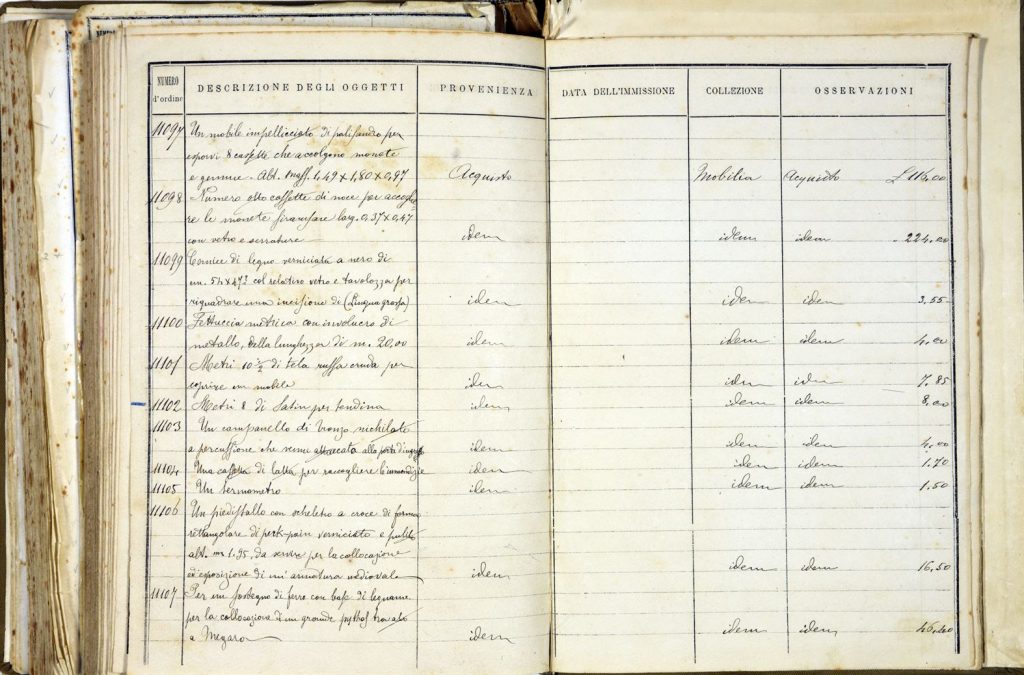 NUMERO d'ordine DESCRIZIONE DEGLI OGGETTI PROVENIENZA DATA DELL'IMMISSIONE COLLEZIONE OSSERVAZIONI
11097 Un mobile impellicciato di palisandro per
esporvi 8 cassette che accolgono monete
e gemme - Alt. 1,49 x 1,80 x 0,97 Acquisto Mobilia Acquisto £ 116,00
11098 Numero otto cassette di noce per accoglie
re le monete larg. 0,37 x 0,47
con vetro e serrature idem idem idem " 224,00
11099 Cornice di legno verniciata a nero di
m. 54 x 473 col relativo vetro e tavolozza per
riquadrare una incisione di (Lingua grossa) idem idem idem 3,55
11100 Fettuccia metrica con involucro di
metallo, della lunghezza di m. 20,00 idem idem idem 4,00
11101 Metri 10 ½ di tela russa cruda per
coprire un mobile idem idem idem 7,85
11102 Metri 8 di Satin per tendina idem idem idem 8,00
11103 Un campanello di bronzo nichilato
a percussione che venne attaccata alla porta d'ingresso idem idem idem 4,00
11104 Una cassetta di latta per raccogliere l'immondizie idem idem idem 1.70
11105 Un termometro idem idem idem 1.50
11106 Un piedistallo con scheletro a croce di forma
rettangolare di pesk-pain verniciato e pulito
alt. m 1.95, da servire per la collocazione
ed esposizione di un' armatura medioevale idem idem idem 16,50
11107 Per un sostegno di ferro con base di legname
per la collocazione di un grande pythos trovato
a Megara idem idem idem 46,40